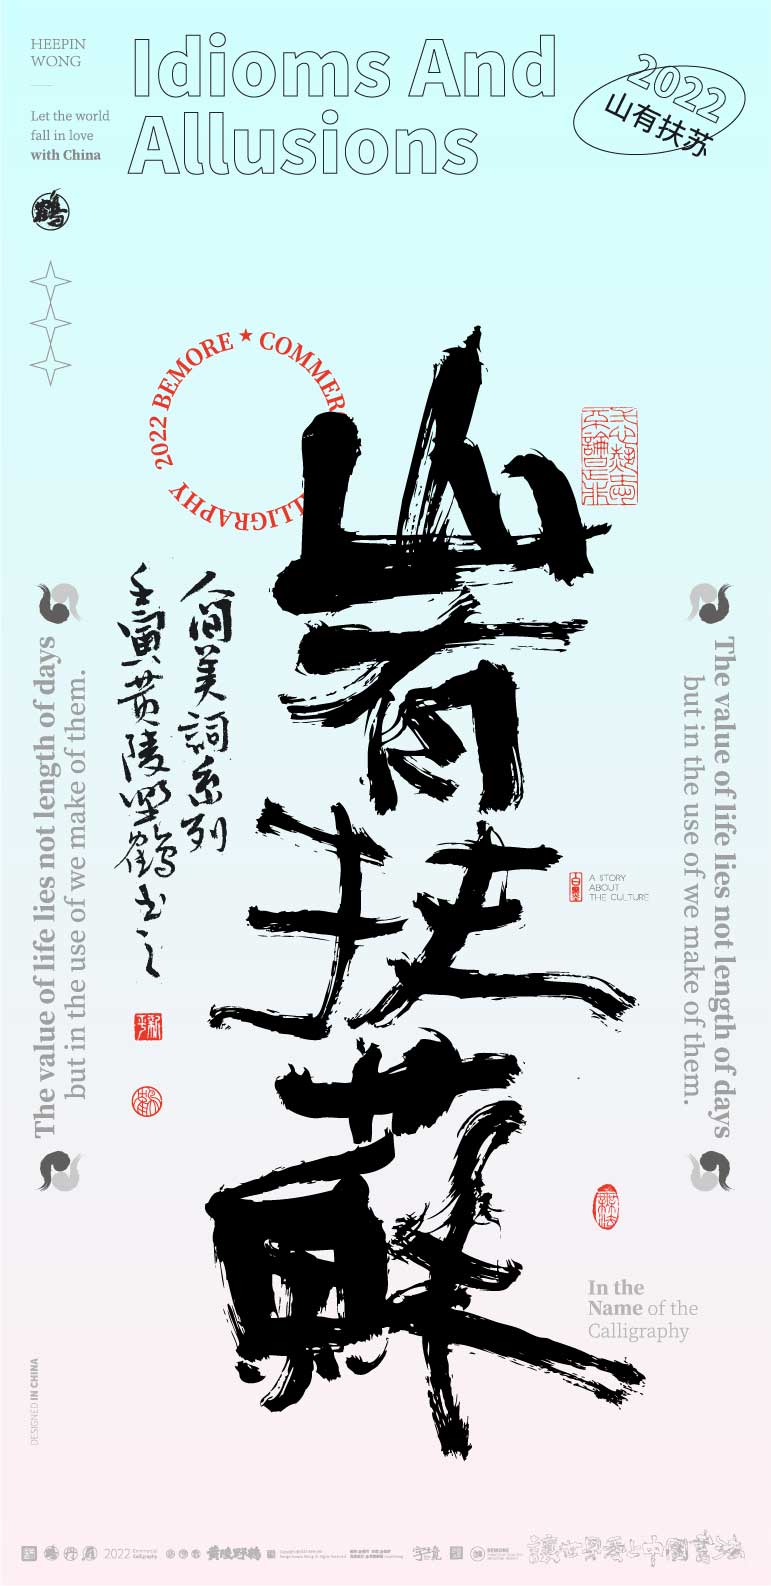 HEEPIN
WONG
Let the world
fall in love
with China
Idioms And
Allusions
2022
山有扶苏
2022 BEMORE ★ COMMER
LLIGRAPHY
山有扶蘇
人间美詞系列
壬寅黄陵野鶴书之
The value of life lies not length of days
but in the use of we make of them.
The value of life lies not length of days
but in the use of we make of them.
A STORY
ABOUT
THE CULTURE
In the
Name of the
Calligraphy
DESIGNED IN CHINA
2022
黄陵野鶴
讓世界愛上中國書法